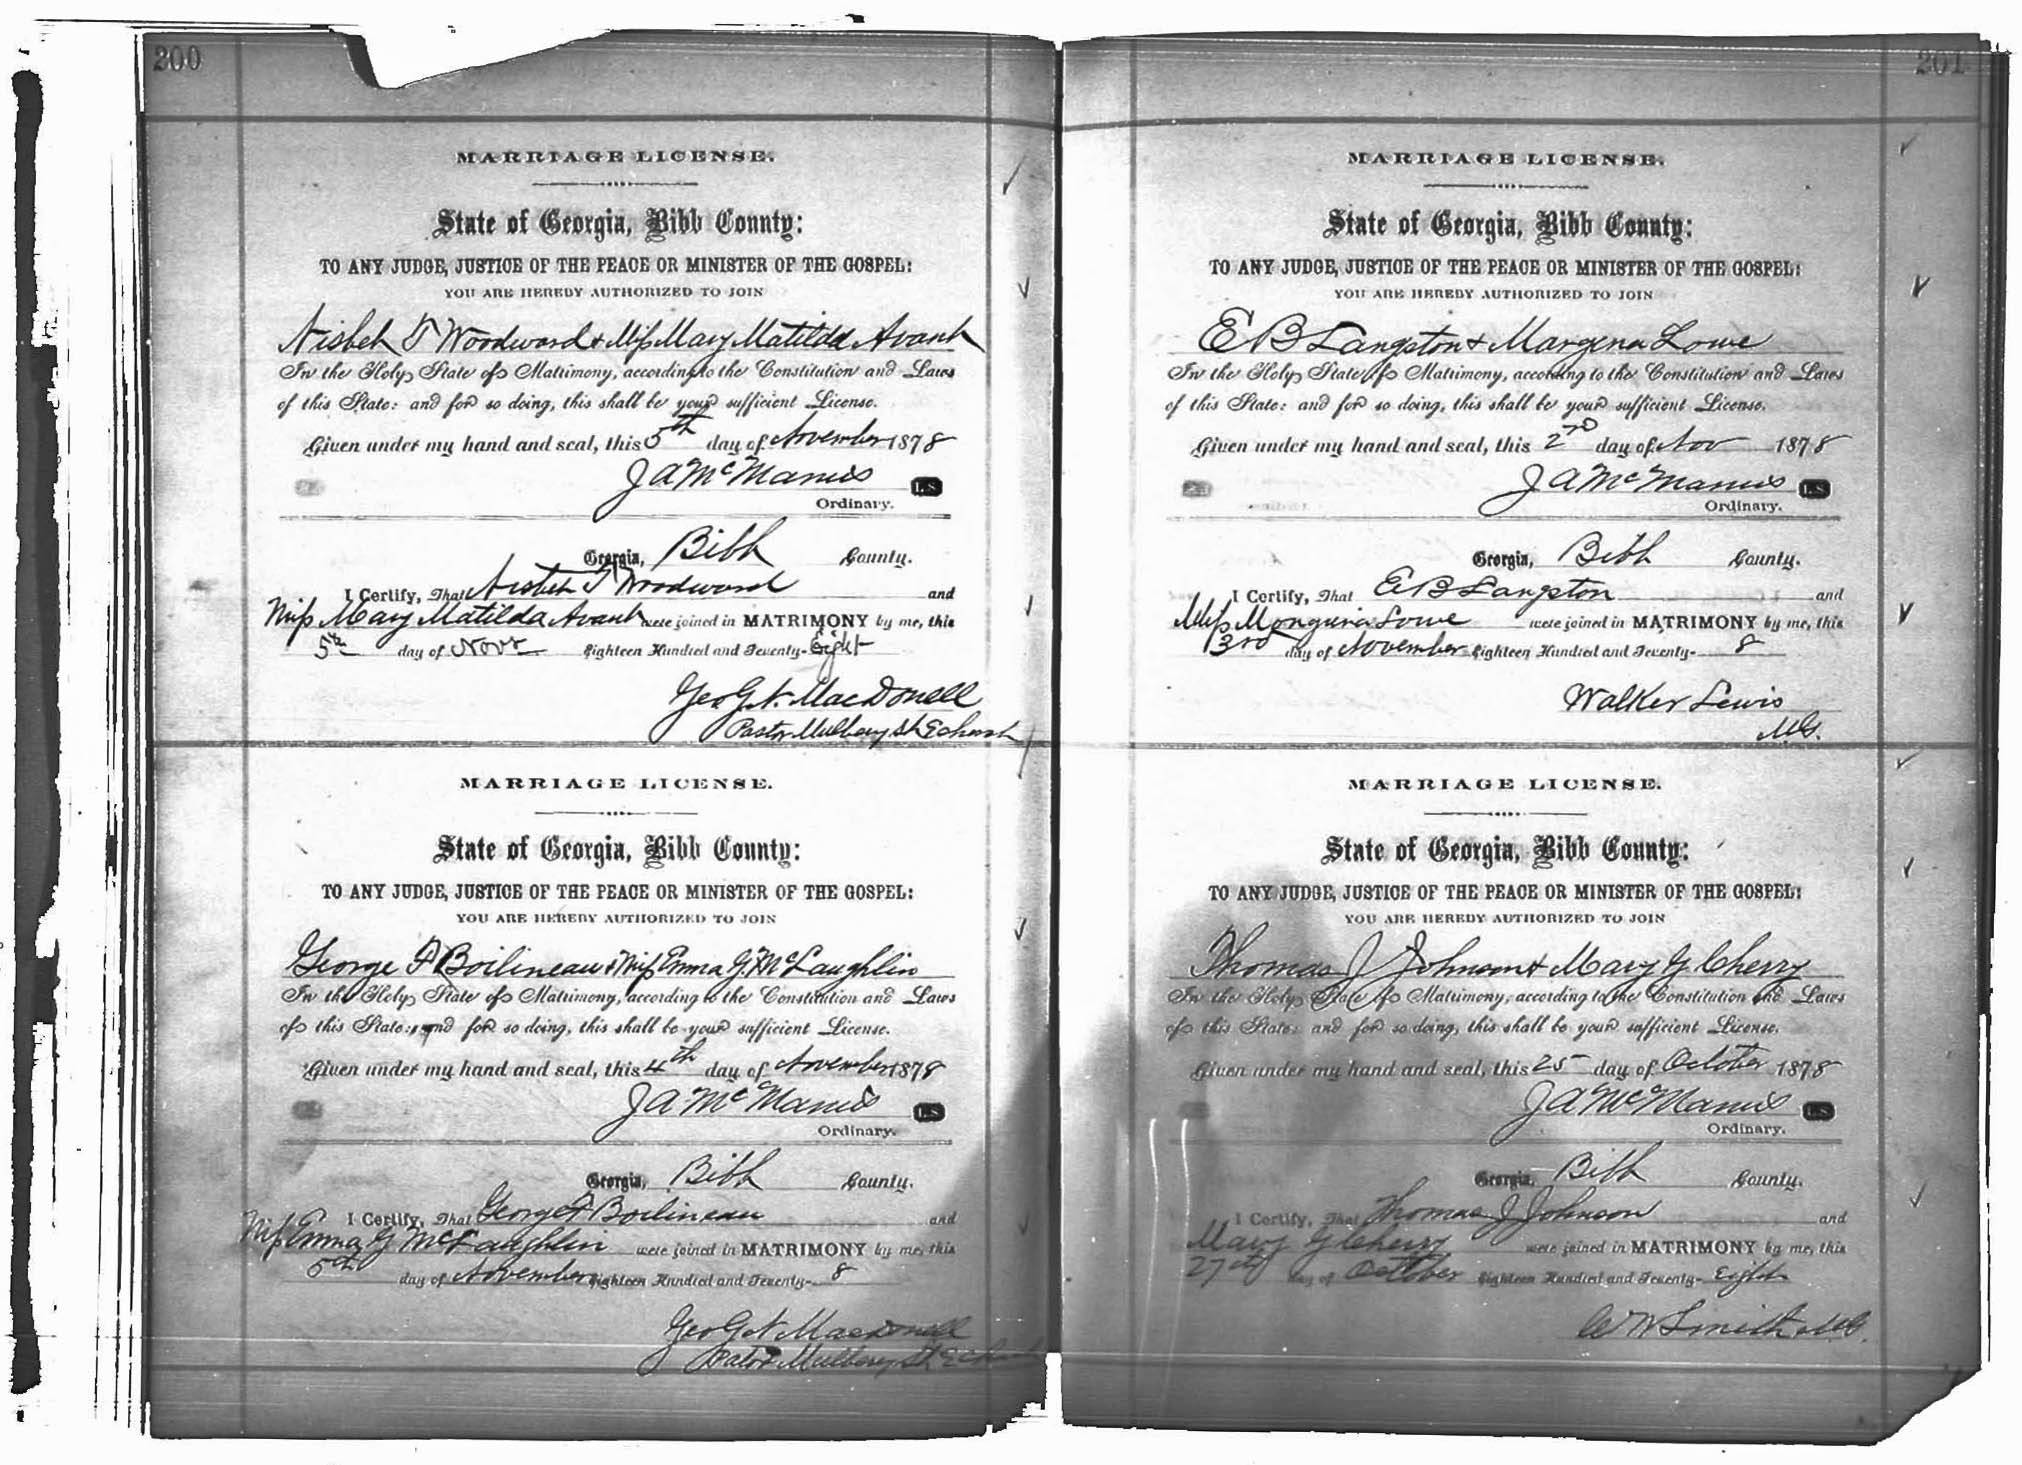 200
MARRIAGE LICENSE.
State of Georgia, Bibb County:
TO ANY JUDGE, JUSTICE OF THE PEACE OR MINISTER OF THE GOSPEL:
YOU ARE HEREBY AUTHORIZED TO JOIN
Nisbet T Woodward & Miss Mary Matilda Avant
In the Holy State of Matrimony, according to the Constitution and Laws
of this State: and for so doing, this shall be your sufficient License.
Given under my hand and seal, this 5th day of November 1878
J A McManus L.S.
Ordinary.
Georgia, Bibb County.
I Certify, That Nisbet T Woodward and
Miss Mary Matilda Avant were joined in MATRIMONY by me, this
5th day of Novr Eighteen Hundred and Seventy- Eight
Geo G. N. MacDonell
Pastor Mulberry St E church
MARRIAGE LICENSE.
State of Georgia, Bibb County:
TO ANY JUDGE, JUSTICE OF THE PEACE OR MINISTER OF THE GOSPEL:
YOU ARE HEREBY AUTHORIZED TO JOIN
George F Boilineau & Miss Emma G. McLaughlin
In the Holy State of Matrimony, according to the Constitution and Laws
of this State: and for so doing, this shall be your sufficient License.
Given under my hand and seal, this 4th day of November 1878
J A McManus L.S.
Ordinary.
Georgia, Bibb County.
I Certify, That George F Boilineau and
Miss Emma G McLaughlin were joined in MATRIMONY by me, this
5th day of November Eighteen Hundred and Seventy- 8
Geo G N MacDonell
Pator Mulberry St E Church
201
MARRIAGE LICENSE.
State of Georgia, Bibb County:
TO ANY JUDGE, JUSTICE OF THE PEACE OR MINISTER OF THE GOSPEL:
YOU ARE HEREBY AUTHORIZED TO JOIN
E B Langston & Margena Lowe
In the Holy State of Matrimony, according to the Constitution and Laws
of this State: and for so doing, this shall be your sufficient License.
Given under my hand and seal, this 2nd day of Nov 1878
J A McManus L.S.
Ordinary.
Georgia, Bibb County.
I Certify, That E B Langston and
Miss Lowe were joined in MATRIMONY by me, this
3rd day of November Eighteen Hundred and Seventy- 8
Walker Lewis
MG.
MARRIAGE LICENSE.
State of Georgia, Bibb County:
TO ANY JUDGE, JUSTICE OF THE PEACE OR MINISTER OF THE GOSPEL:
YOU ARE HEREBY AUTHORIZED TO JOIN
Thomas J Johnson & Mary G Cherry
In the Holy State of Matrimony, according to the Constitution and Laws
of this State: and for so doing, this shall be your sufficient License.
Given under my hand and seal, this 25 day of October 1878
J A McManus L.S.
Ordinary.
Georgia, Bibb County.
I Certify, That Thomas J Johnson and
Mary G Cherry were joined in MATRIMONY by me, this
27th day of October Eighteen Hundred and Seventy- Eight
W W Smith MG.